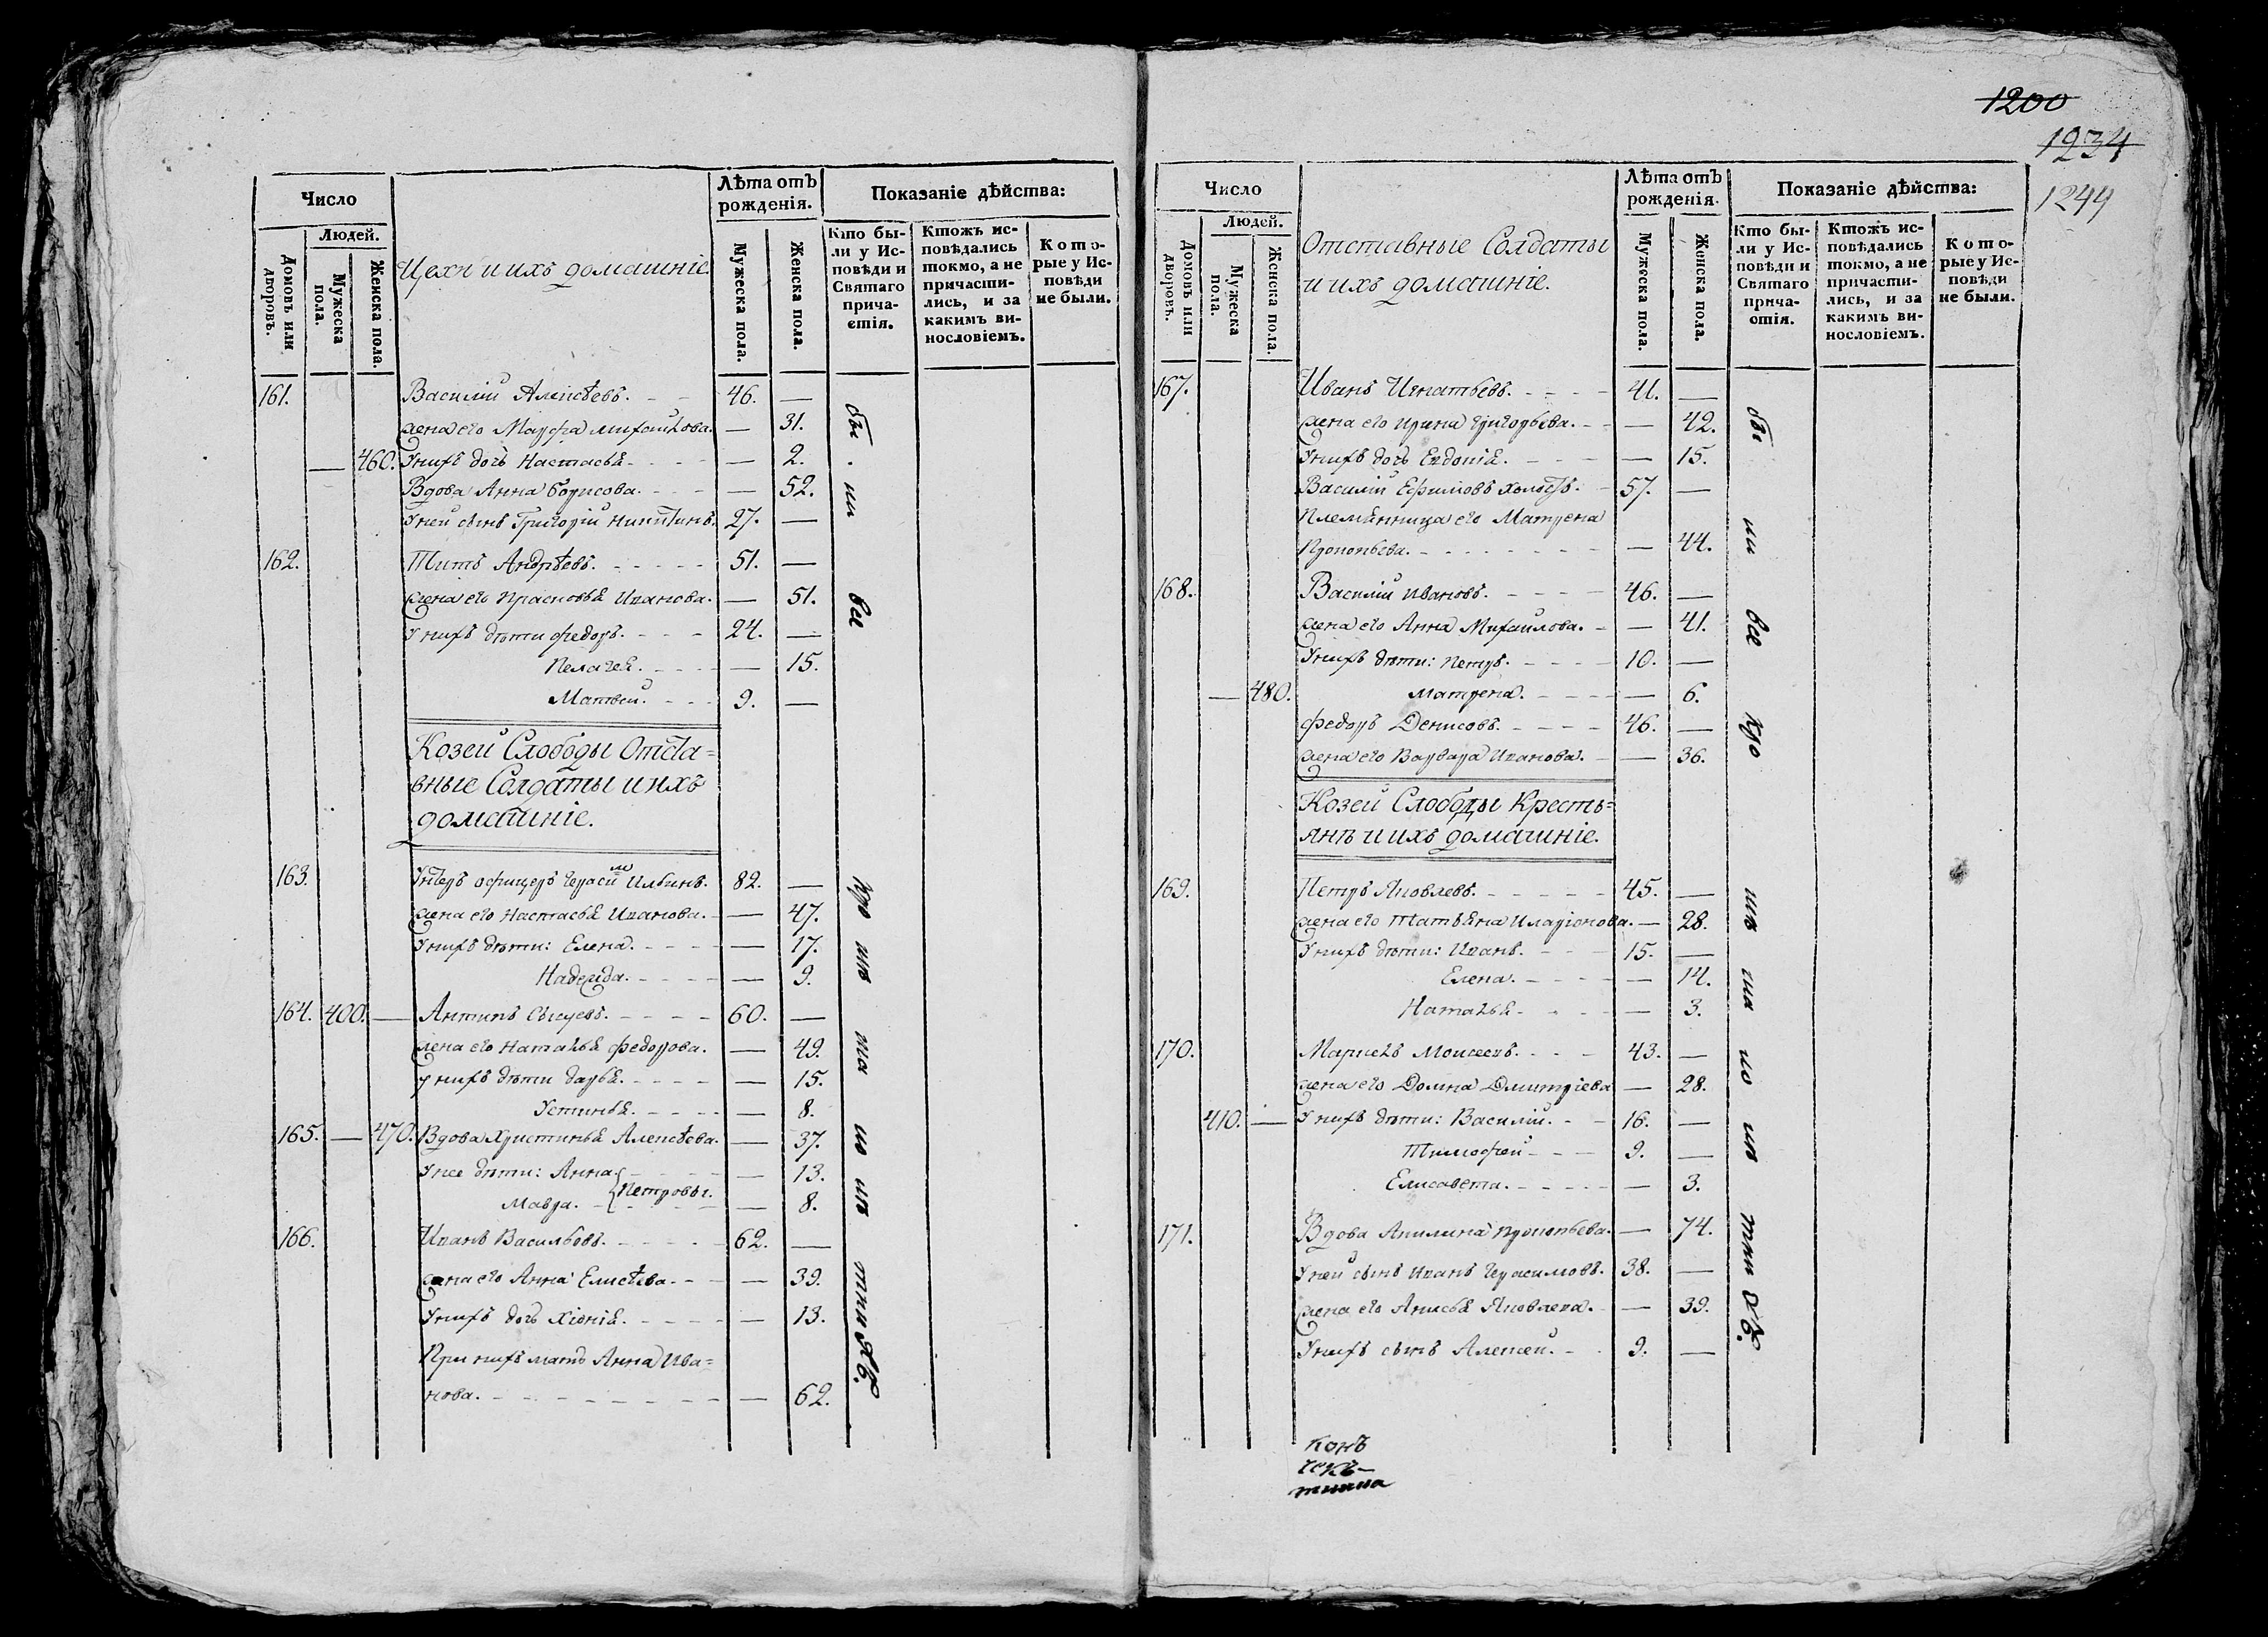 1200
1234
1244
Число
Людей.
Домовъ или дворовъ.
Мужеска пола.
Женска пола.
Цехи и ихъ домашніе.
Лѣта отъ рожденія.
Мужеска пола.
Женска пола.
Показаніе дѣйства:
Кто были у Исповѣди и Святаго причастія.
Ктожъ исповѣдались токмо, а не причастились, и за какимъ винословіемъ.
Которые у Исповѣди не были.
161. Василій Алексѣевъ. 46. —
жена его Марфа Михайлова. — 31.
— 460. У нихъ дочь Настасья — 2.
Вдова Анна Борисова. — 52.
У ней сынъ Григорій Никитинъ. 27. —
162. Титъ Андрѣевъ. 51. —
жена его Прасковья Иванова. — 51.
У нихъ дѣти Федоръ. 24. —
Пелагея. — 15.
Матвей. 9. —
Козей Слободы Отста=
вные Солдаты и ихъ
домашніе.
163. Унтеръ офицеръ Герасимъ Ильинъ. 82. —
жена его Настасья Иванова. — 47.
У нихъ дѣти: Елена. — 17.
Надежда. — 9.
164. 400. — Антипъ Сысуевъ. 60. —
жена его Наталья Федорова. — 49.
У нихъ дѣти Дарья. — 15.
Устинья. — 8.
165. — 470. Вдова Христинья Алексѣева. — 37.
У нее дѣти: Анна — 13.
Мавра. Петровы. — 8.
166. Иванъ Васильевъ. 62. —
жена его Анна Елисѣева. — 39.
У нихъ дочь Хіонія. — 13.
При нихъ мать Анна Ива=
нова. — 62.
бы ли все
Число
Людей.
Домовъ или дворовъ.
Мужеска пола.
Женска пола.
Отставные Солдаты
и ихъ домашніе.
Лѣта отъ рожденія.
Мужеска пола.
Женска пола.
Показаніе дѣйства:
Кто были у Исповѣди и Святаго причастія.
Ктожъ исповѣдались токмо, а не причастились, и за какимъ винословіемъ.
Которые у Исповѣди не были.
167. Иванъ Игнатьевъ. 41. —
жена его Ирина Григорьева. — 42.
У нихъ дочь Евдокія. — 15.
Василій Ефимовъ холостъ. 57. —
Племянница его Матрена
Прокопьева. — 44.
168. Василій Ивановъ. 46. —
жена его Анна Михайлова. — 41.
У нихъ дѣти: Петръ. 10. —
— 480. Матрена. — 6.
Федоръ Денисовъ. 46. —
жена его Варвара Иванова. — 36.
Козей Слободы Кресть=
янъ и ихъ домашніе.
169. Петръ Яковлевъ. 45. —
жена его Татьяна Иларіонова. — 28.
У нихъ дѣти: Иванъ. 15. —
Елена. — 14.
Наталья — 3.
170. Маркелъ Моисеевъ. 43. —
жена его Домна Дмитріева — 28.
410. — У нихъ дѣти: Василій. 16. —
Тимофей 9. —
Елисавета. — 3.
171. Вдова Акилина Прокопьева. — 74.
У ней сынъ Иванъ Герасимовъ. 38. —
жена его Анисья Яковлева. — 39.
У нихъ сынъ Алексей. 9. —
бы ли все